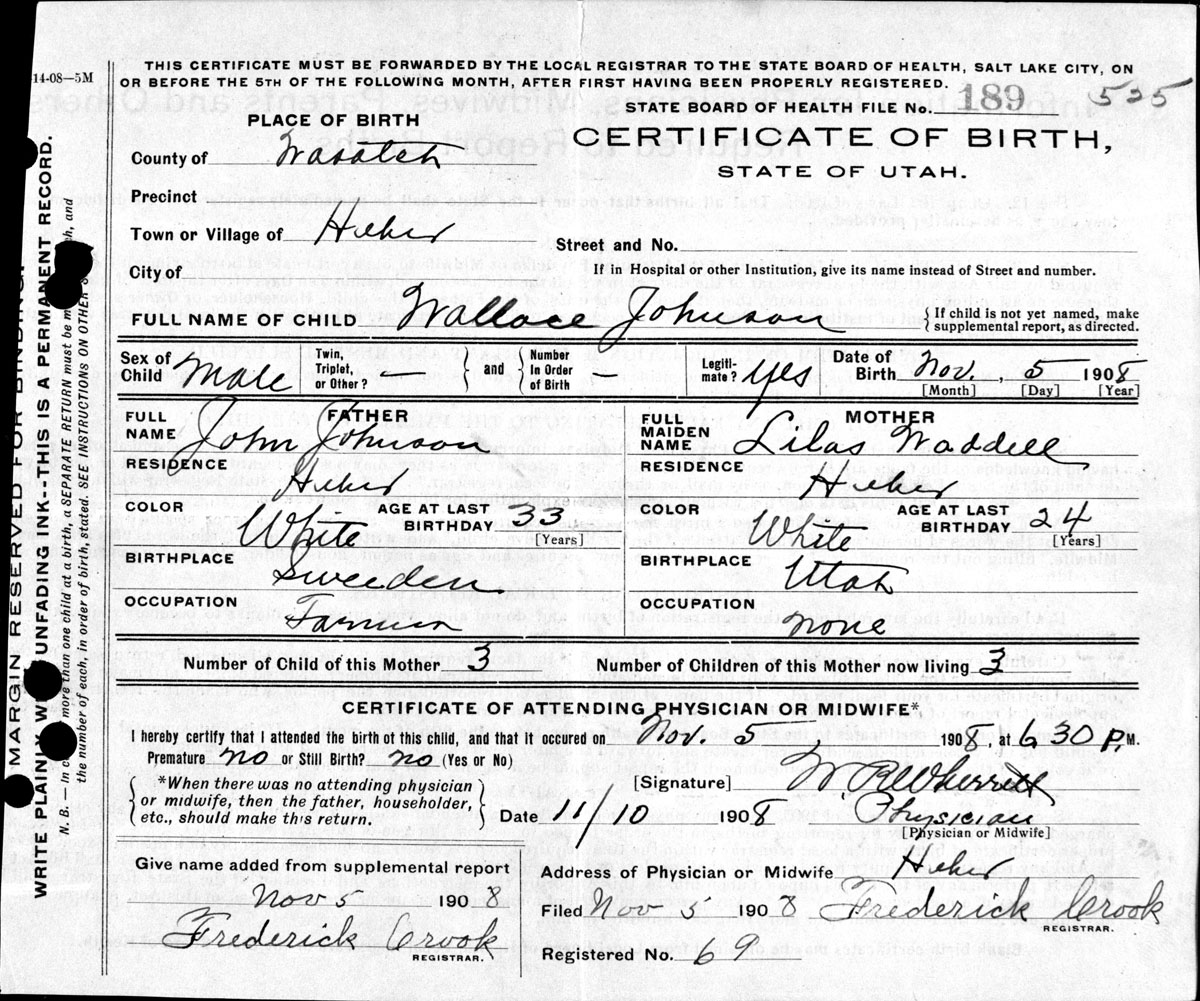 14-08—5M
THIS CERTIFICATE MUST BE FORWARDED BY THE LOCAL REGISTRAR TO THE STATE BOARD OF HEALTH, SALT LAKE CITY, ON
OR BEFORE THE 5TH OF THE FOLLOWING MONTH, AFTER FIRST HAVING BEEN PROPERLY REGISTERED.
STATE BOARD OF HEALTH FILE No. 189 535
PLACE OF BIRTH
CERTIFICATE OF BIRTH,
STATE OF UTAH.
County of Wasatch
Precinct
Town or Village of Heber
Street and No.
City of
If in Hospital or other Institution, give its name instead of Street and number.
FULL NAME OF CHILD Wallace Johnson { If child is not yet named, make supplemental report, as directed.
Sex of Child Male Twin, Triplet, or Other? — } and { Number In Order of Birth — Legiti- mate? yes Date of Birth Nov. , 5 1908
[Month] [Day] [Year]
FATHER
FULL NAME John Johnson
RESIDENCE Heber
COLOR White AGE AT LAST BIRTHDAY 33
[Years]
BIRTHPLACE Sweeden
OCCUPATION Farmer
MOTHER
FULL MAIDEN NAME Lilas Waddell
RESIDENCE Heber ?
COLOR White AGE AT LAST BIRTHDAY 24
[Years]
BIRTHPLACE Utah
OCCUPATION none
Number of Child of this Mother 3 Number of Children of this Mother now living 3
CERTIFICATE OF ATTENDING PHYSICIAN OR MIDWIFE*
I hereby certify that I attended the birth of this child, and that it occured on Nov. 5 1908, at 630 P. M.
Premature no or Still Birth? no (Yes or No)
{ *When there was no attending physician or midwife, then the father, householder, etc., should make this return. }
[Signature] W R Wherritt
Date 11/10 1908 Physician
[Physician or Midwife]
Give name added from supplemental report
Nov 5 1908
Frederick Crook
REGISTRAR.
Address of Physician or Midwife Heber
Filed Nov 5 1908 Frederick Crook
REGISTRAR.
Registered No. 69
MARGIN RESERVED FOR BINDING.
WRITE PLAINLY UNFADING INK—THIS IS A PERMANENT RECORD.
N. B.— In more than one child at a birth, a SEPARATE RETURN must be and
the number of each, in order of birth, stated. SEE INSTRUCTIONS ON OTHER